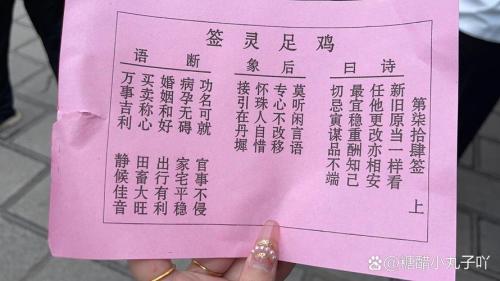 鸡足灵签
第柒拾肆签 上
诗曰
新旧原当一样看
任他更改亦相安
最宜稳重酬知己
切忌寅谋品不端
后象
莫听闲言语
专心不改移
怀珠人自惜
接引在丹墀
断语
功名可就 官事不侵
病孕无碍 家宅平稳
婚姻和好 出行有利
买卖称心 田畜大旺
万事吉利 静候佳音
@糖醋小丸子吖